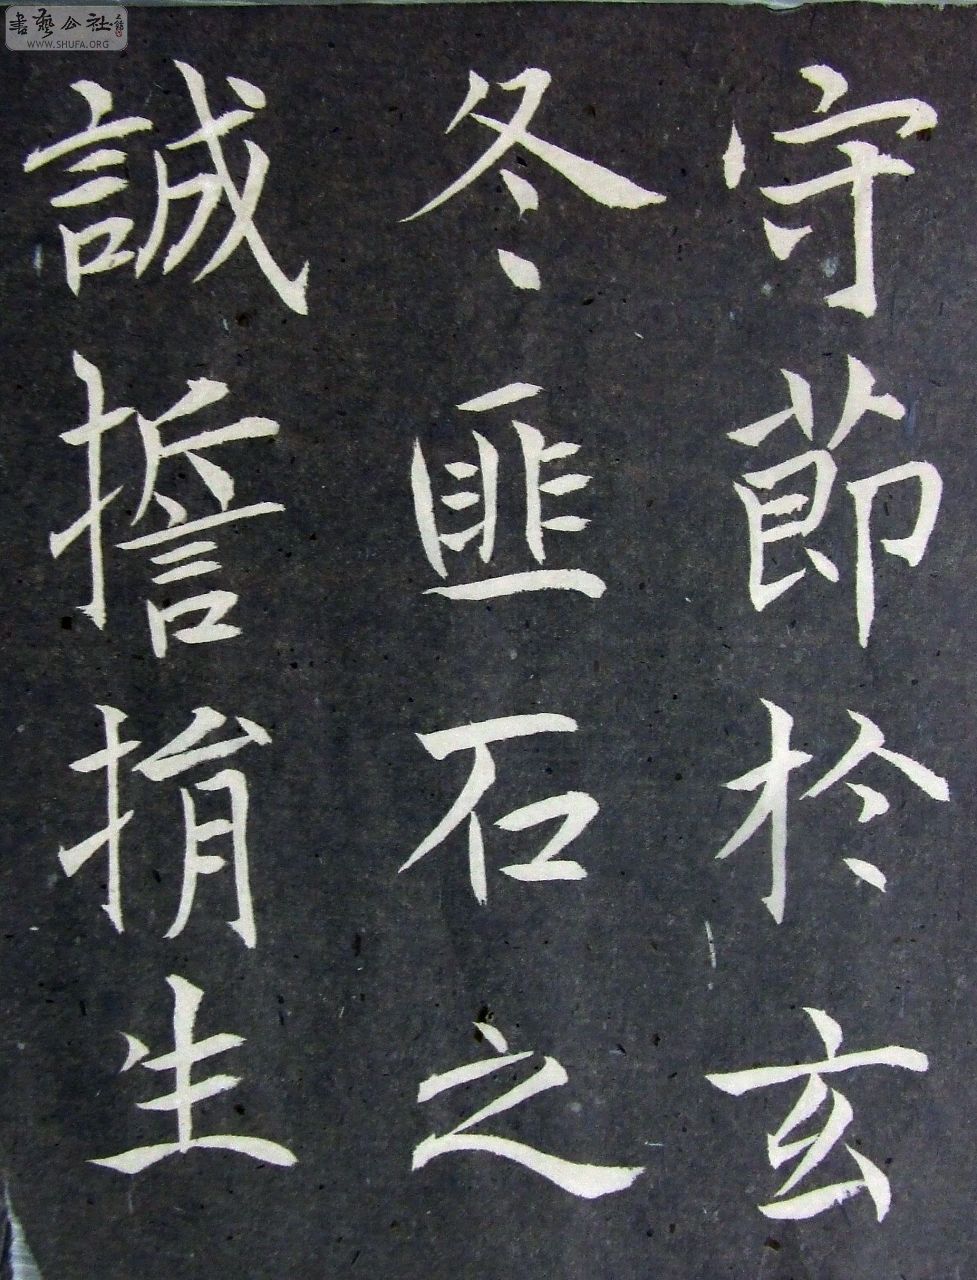 守節於玄
冬匪石之
誠擔捐生
書藝公社
WWW.SHUFA.ORG